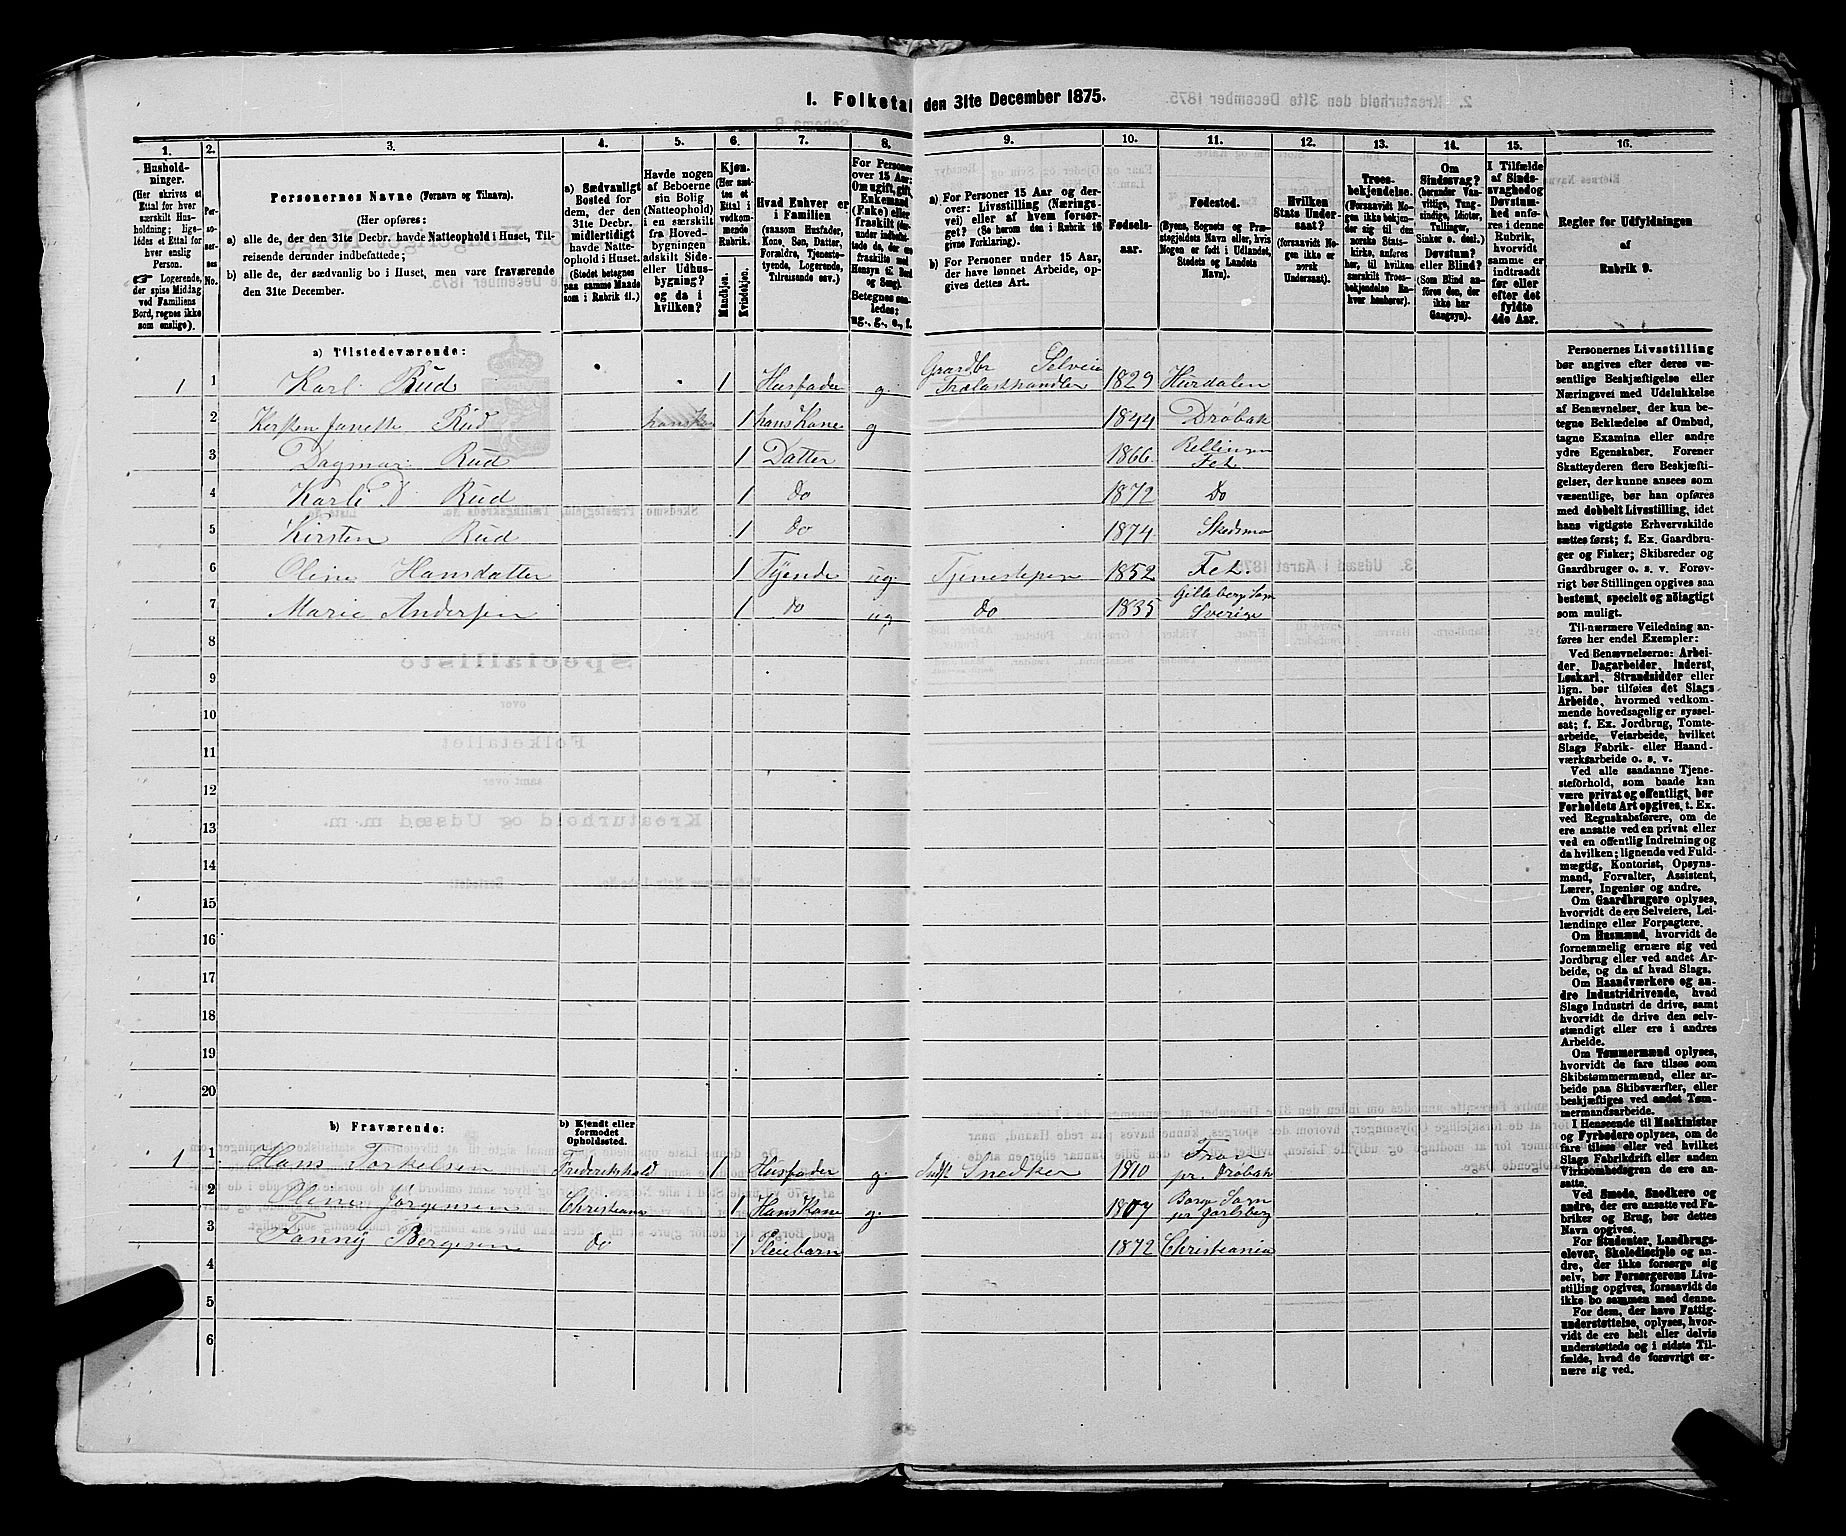 I. Folketal den 31te December 1875.
1.
Hushold-
ninger.
(Her skrives et
Ettal for hver
særskilt Hus-
holdning; lige-
ledes et Ettal for
hver enslig
Person.
Logerende,
der spise Middag
ved Familiens
Bord, regnes ikke
som enslige).
2.
Per-
so-
ner-
nes
No.
3.
Personernes Navne (Fornavn og Tilnavn).
(Her opføres:
a) alle de, der den 31te Decbr. havde Natteophold i Huset, Til-
reisende derunder indbefattede;
b) alle de, der sædvanlig bo i Huset, men vare fraværende
den 31te December.
4.
a) Sædvanligt
Bosted for
dem, der den
31te Decbr.
midlertidigt
havde Natte-
ophold i Huset.
(Stedet betegnes
paa samme Maade
som i Rubrik 11.)
5.
Havde nogen
af Beboerne
sin Bolig
(Natteophold)
i en særskilt
fra Hoved-
bygningen
adskilt Side-
eller Udhus-
bygning?
og da i
hvilken?
6.
Kjøn.
(Her sæt-
tes et
Ettal i
vedkom-
mende
Rubrik.
Mandkjøn.
Kvindekjøn.
7.
Hvad Enhver er
i Familien
(saasom Husfader,
Kone, Søn, Datter,
Forældre, Tjeneste-
tyende, Logerende,
Tilreisende osv.)
8.
For Personer
over 15 Aar:
Om ugift, gift,
Enkemand
(Enke) eller
fraskilt
Betegnes saa-
ledes:
ug., g., e., f.
9.
a) For Personer 15 Aar og der-
over: Livsstilling (Nærings-
vei) eller af hvem forsør-
get? (Se herom den i Rubrik 16
givne Forklaring).
b) For Personer under 15 Aar,
der have lønnet Arbeide, op-
gives dettes Art.
10.
Fødsels-
aar.
11.
Fødested.
(Byens, Sognets og Præ-
stegjeldets Navn eller, hvis
Nogen er født i Udlandet,
Stedets og Landets
Navn).
12.
Hvilken
Stats Under-
saat?
(forsaavidt No-
gen ikke er
norsk
Undersaat).
13.
Troes-
bekjendelse.
(Forsaavidt No-
gen ikke bekjen-
der sig til den
norske Stats-
kirke, anføres
her, til hvilken
særskilt Troes-
bekjendelse En-
hver henhører).
14.
Om
Sindssvag?
(herunder Van-
vittige, Tung-
sindige, Idioter,
Tullinger,
Sinker o. desl.)
Døvstum?
eller Blind?
(Som Blind an-
føres den, der
ikke har
Gangsyn).
15.
I Tilfælde
af Sinds-
svaghed og
Døvstum-
hed anfø-
res i denne
Rubrik,
hvorvidt
samme er
indtraadt
før eller
efter det
fyldte
4de Aar.
16.
Regler for Udfyldningen
af
Rubrik 9.
a) Tilstedeværende:
Gaardbr Selveier
1 1 Karl Rud 1 Husfader g. Trælasthandler 1829 Hurdalen
2 Kirsten Janette Rud 1 hans Kone g 1844 Drøbak
3 Dagmar Rud 1 Datter 1866 Fet
4 Karli D Rud 1 do 1872 Do
5 Kirsten Rud 1 do 1874 Skedsmo
6 Oline Hansdatter 1 Tyende ug Tjenestepige 1852 Fet.
7 Marie Andersen 1 do ug do 1835 Sverige
8
9
10
11
12
13
14
15
16
17
18
19
20
b) Fraværende:
b) Kjendt eller
formodet
Opholdssted.
1 1 Hans Torkelsen Frederikshald 1 Husfader g. Snedker 1810 Fron pr. Drøbak
2 Oline Jørgensen Christiania 1 Hans Kone g. 1807 pr Jarlsberg
3 Fanny Bergesen do 1 Pleiebarn 1872 Christiania
4
5
6
Personernes Livsstilling
bør angives efter deres væ-
sentlige Beskjæftigelse eller
Næringsvei med Udelukkelse
af Benævnelser, der kun be-
tegne Beklædelse af Ombud,
tagne Examina eller andre
ydre Egenskaber. Forener
Skatteyderen flere Beskjæfti-
gelser, der kunne ansees som
væsentlige, bør han opføres
med dobbelt Livsstilling, idet
hans vigtigste Erhvervskilde
sættes først; f. Ex. Gaardbru-
ger og Fisker; Skibsreder og
Gaardbruger o. s. v. Forøv-
rigt bør Stillingen opgives saa
bestemt, specielt og nøiagtigt
som muligt.
Til nærmere Veiledning an-
føres her endel Exempler:
Ved Benævnelserne: Arbei-
der, Dagarbeider, Inderst,
Løskarl, Strandsidder eller
lign. bør tilføies det Slags
Arbeide, hvormed vedkom-
mende hovedsagelig er syssel-
sat; f. Ex. Jordbrug, Tomte-
arbeide, Veiarbeide, hvilket
Slags Fabrik- eller Haand-
værksarbeide o. s. v.
Ved alle saadanne Tjene-
steforhold, som baade kan
være privat og offentligt, bør
Forholdets Art opgives, t. Ex.
ved Regnskabsførere, om de
ere ansatte ved en privat eller
ved en offentlig Indretning og
da hvilken; lignende ved Fuld-
mægtig, Kontorist, Opsyns-
mand, Forvalter, Assistent,
Lærer, Ingeniør og andre.
Om Gaardbrugere oplyses,
hvorvidt de ere Selveiere, Lei-
lændinge eller Forpagtere.
Om Husmænd, hvorvidt de
fornemmelig ernære sig ved
Jordbrug eller ved andet Ar-
beide, og da af hvad Slags.
Om Haandværkere og an-
dre Industridrivende, hvad
Slags Industri de drive, samt
hvorvidt de drive den selv-
stændigt eller ere i andres
Arbeide.
Om Tømmermænd oplyses,
hvorvidt de fare tilsøs som
Skibstømmermænd, eller ar-
beide paa Skibsværfter, eller
beskjæftiges ved andet Tøm-
mermandsarbeide.
I Henseende til Maskinister
og Fyrbødere oplyses, om de
fare tilsøs eller ved hvilket
Slags Fabrikdrift eller anden
Virksomhed de ere an-
satte.
Ved Smede, Snedkere og
andre, der ere ansatte ved Fa-
briker og Brug, bør dettes
Navn opgives.
For Studenter, Landbrugs-
elever, Skoledisciple og an-
dre, der ikke forsørge sig
selv, bør Forsørgerens Livs-
stilling opgives, forsaavidt de
ikke bo sammen med denne.
For dem, der have Fattig-
understøttelse, oplyses, hvor-
vidt de ere helt eller delvis
understøttede og i sidste Til-
fælde, hvad de forøvrigt er-
nære sig ved.